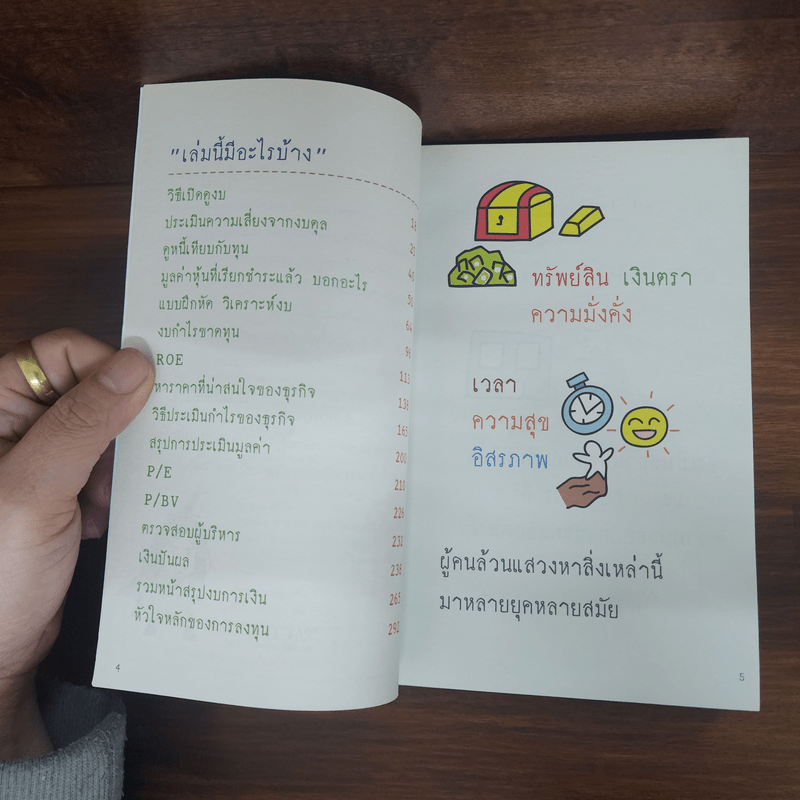 "เล่มนี้มีอะไรบ้าง"
วิธีเปิดดูงบ
ประเมินความเสี่ยงจากงบดุล
ดูหนี้เทียบกับทุน 40
มูลค่าหุ้นที่เรียกชำระแล้ว บอกอะไร 50
แบบฝึกหัด วิเคราะห์งบ 64
งบกำไรขาดทุน 96
ROE 113
หาราคาที่น่าสนใจของธุรกิจ 138
วิธีประเมินกำไรของธุรกิจ 165
สรุปการประเมินมูลค่า 200
P/E 210
P/BV 226
ตรวจสอบผู้บริหาร 232
เงินปันผล 238
รวมหน้าสรุปงบการเงิน 265
หัวใจหลักของการลงทุน 292
4
ทรัพย์สิน เงินตรา
ความมั่งคั่ง
เวลา
ความสุข
อิสรภาพ
ผู้คนล้วนแสวงหาสิ่งเหล่านี้
มาหลายยุคหลายสมัย
5